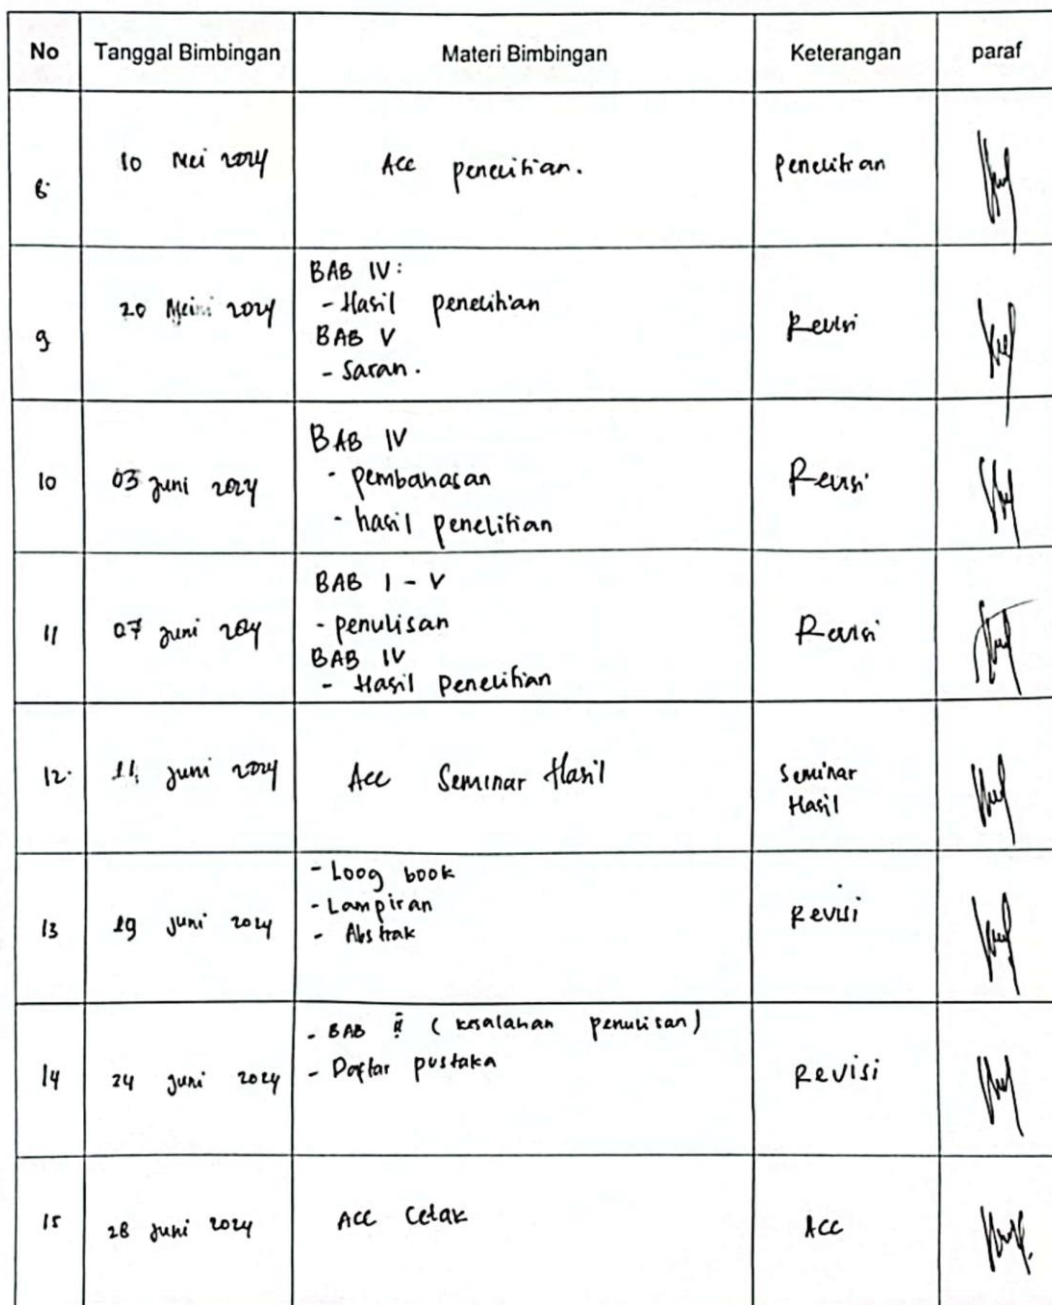 No Tanggal Bimbingan Materi Bimbingan Keterangan paraf
8. 10 Mei 2024 Acc penelitian. penelitian
9 20 Mei 2024 BAB IV: Revisi
- Hasil penelitian
BAB V
- Saran.
10 03 Juni 2024 BAB IV Revisi
- pembahasan
- hasil penelitian
11 07 Juni 2024 BAB I - V Revisi
- penulisan
BAB IV
- Hasil penelitian
12. 11 Juni 2024 Acc Seminar Hasil Seminar
Hasil
13 19 Juni 2024 - Loog book Revisi
- Lampiran
- Abstrak
14 24 Juni 2024 - BAB (kesalahan penulisan) Revisi
- Daftar pustaka
15 28 Juni 2024 ACC Cetak ACC